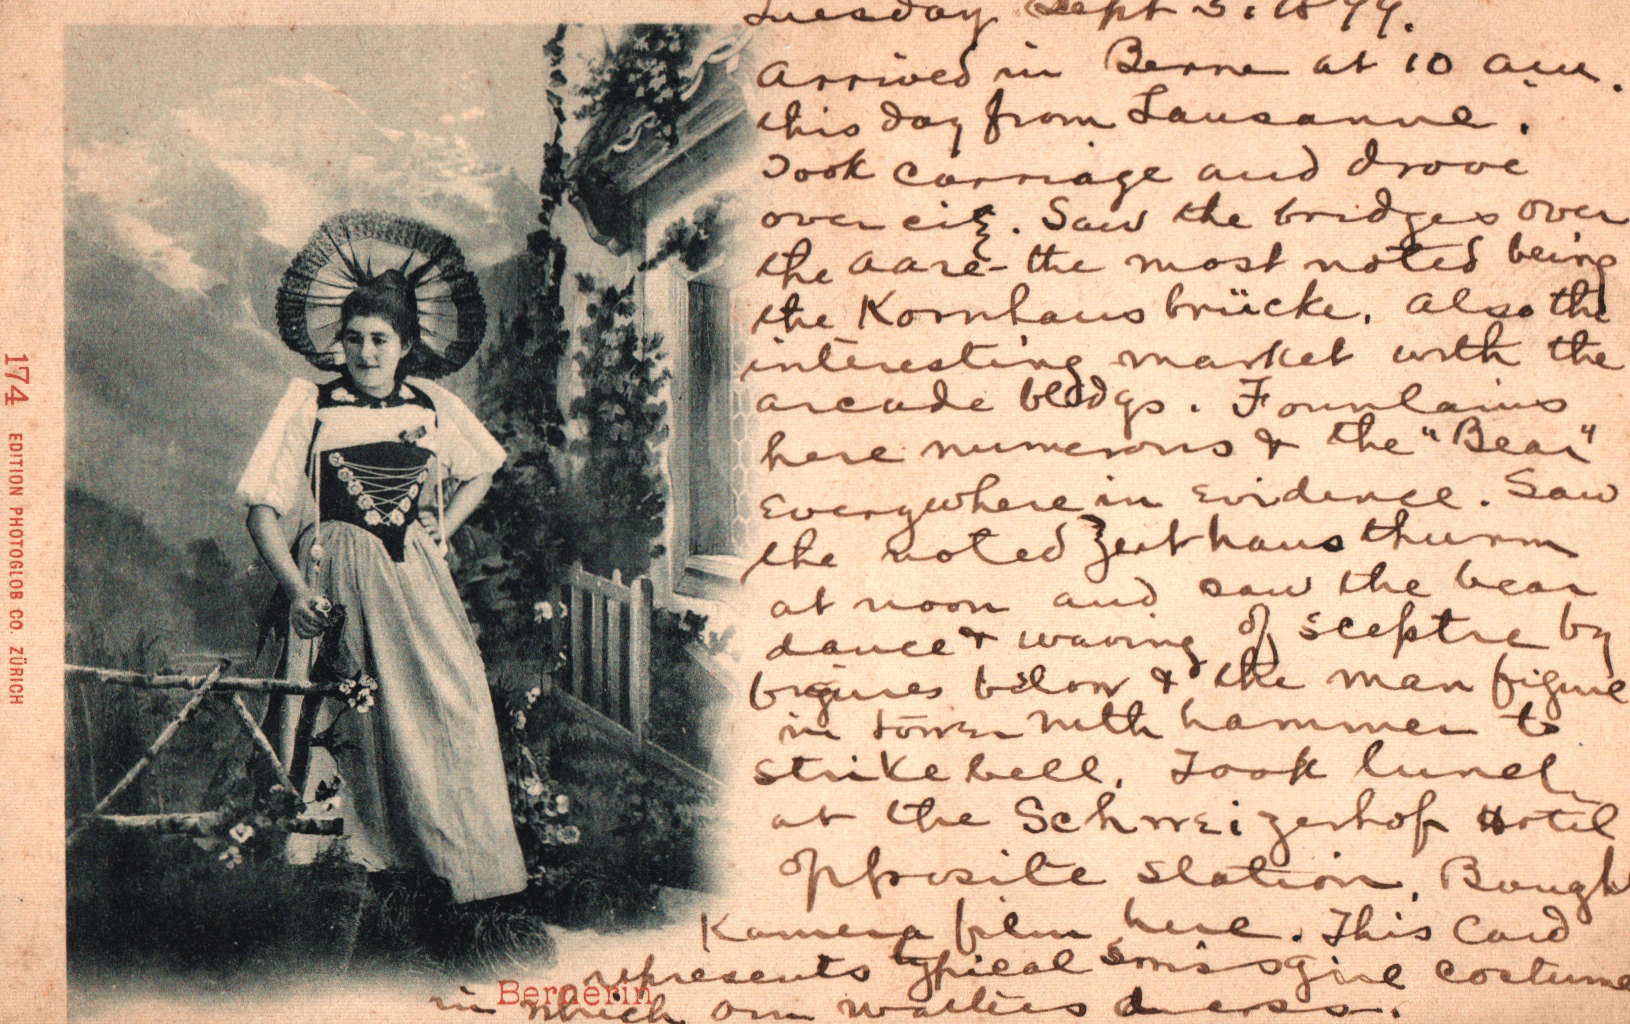 Tuesday Sept 5. 1899.
Arrived in Berne at 10 a.m.
this day from Lausanne.
Took carriage and drove
over city. Saw the bridges over
the Aare - the most noted being
the Kornhausbrücke. Also the
interesting market with the
arcade bldgs. Fountains
here numerous & the "Bear"
everywhere in evidence. Saw
the noted Zeithausthurm
at noon and saw the bear
dance & waving of sceptre by
figures below & the man figure
in tower with hammer to
strike bell. Took lunch
at the Schweizerhof Hotel
opposite station. Bought
Kamera film here. This Card
represents typical Swiss girl costume
in which our waiters dress.
Bernerin
174 EDITION PHOTOGLOB CO. ZÜRICH